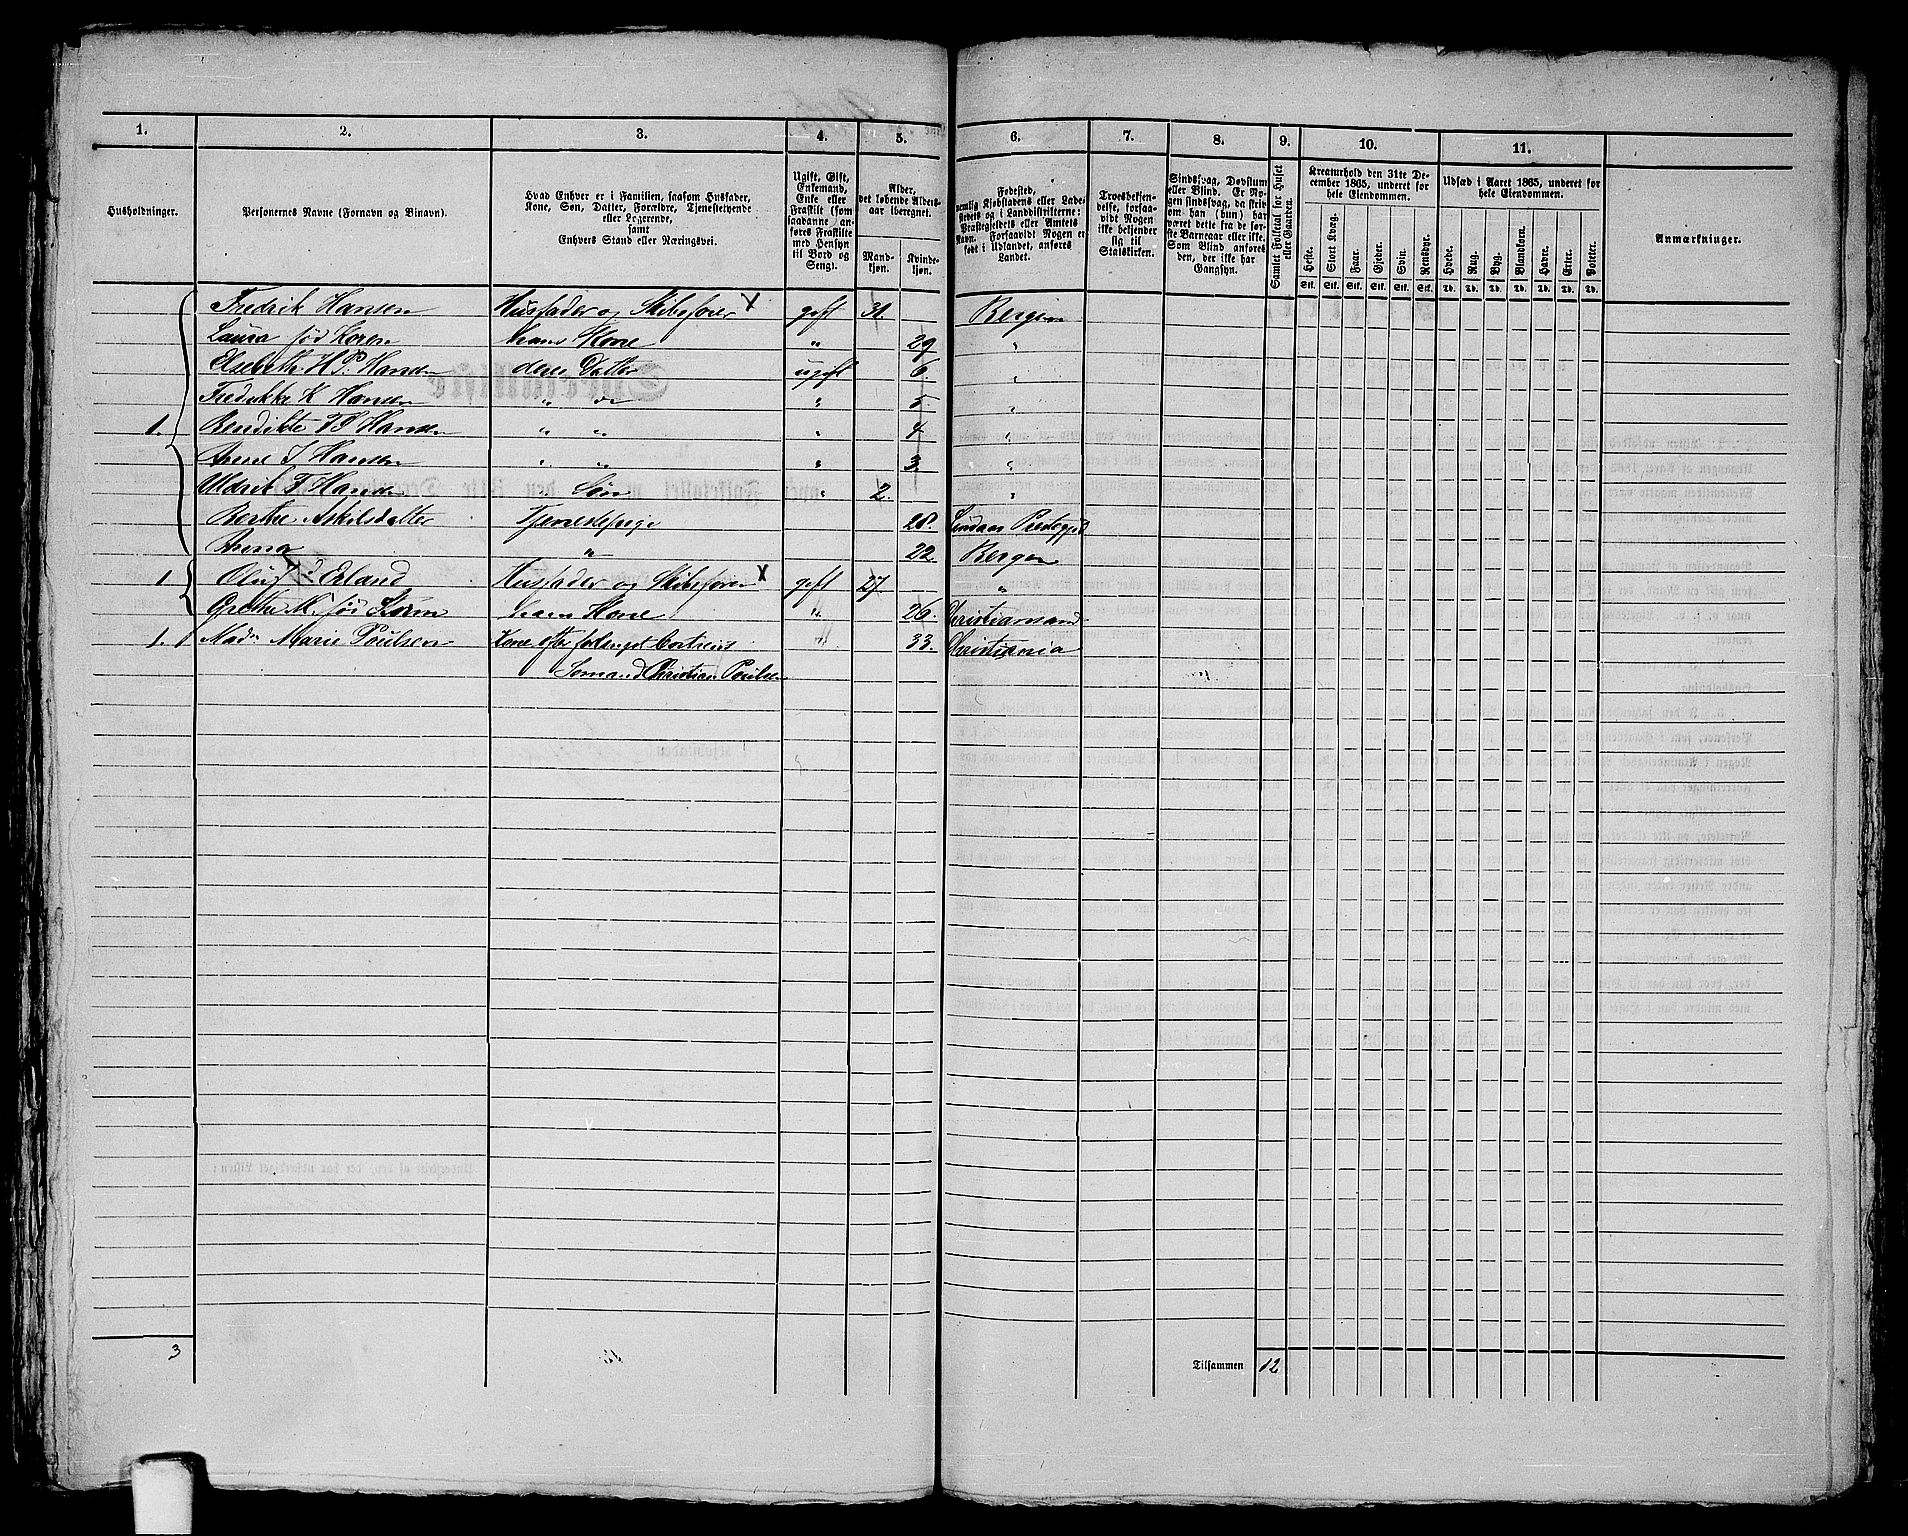 1. 2. 3. 4. 5. 6. 7. 8. 9. 10. 11.
Husholdninger.
Personernes Navne (Fornavn og Binavn).
Hvad Enhver er i Familien, saasom Husfader,
Kone, Søn, Datter, Forældre, Tjenestetyende
eller Logerende,
samt
Enhvers Stand eller Næringsvei.
Ugift, Gift,
Enkemand,
Enke eller
Fraskilt (som
saadanne an-
føres Fraskilte
med Hensyn
til Bord og
Seng).
Alder,
det løbende Alders-
aar iberegnet.
Mand-
kjøn.
Kvinde-
kjøn.
Fødested,
nemlig Kjøbstadens eller Lade-
stedets og i Landdistrikterne:
Præstegjeldets eller Amtets
Navn. Forsaavidt Nogen er
født i Udlandet, anføres
Landet.
Troesbekjen-
delse, forsaa-
vidt Nogen
ikke bekjender
sig til
Statskirken.
Sindssvag, Døvstum
eller Blind. Er No-
gen sindssvag, da skriv
om han (hun) har
været dette fra de før-
ste Barneaar eller ikke.
Som Blind anføres
den, der ikke har
Gangsyn.
Samlet Folketal for Huset
eller Gaarden.
Kreaturhold den 31te De-
cember 1865, underet for
hele Eiendommen.
Heste. Stort Kvæg. Faar. Gjeder. Svin. Rensdyr.
Stk. Stk. Stk. Stk. Stk. Stk.
Udsæd i Aaret 1865, underet for
hele Eiendommen.
Hvede. Rug. Byg. Blandkorn. Havre. Erter. Poteter.
Td. Td. Td. Td. Td. Td. Td.
Anmærkninger.
Fredrik Hansen Husfader og Skibsfører X gift 31. Bergen
Laura fød Koren hans Kone " 29. "
Elsebeth H. P. Hansen deres Datter ugift 6. "
Fredrikke K Hansen " do " 5. "
1. Bendikte Hansen " " " 4 "
Anne J Hansen " " " 3. "
Uldrik F Hansen " Søn " 2. "
Berthe Askilsdatter Tjenestepige 28.
Anna " 22. Bergen
1. Oluf Erland Husfader og Skibsfører X gift 27. "
Grethe M. fød Storm hans Kone " 26. Christiansand
1. Mad: Marie Poulsen Kone efter " 33. Christiania
Sømand Christian Poulsen
3
12.
Tilsammen 12